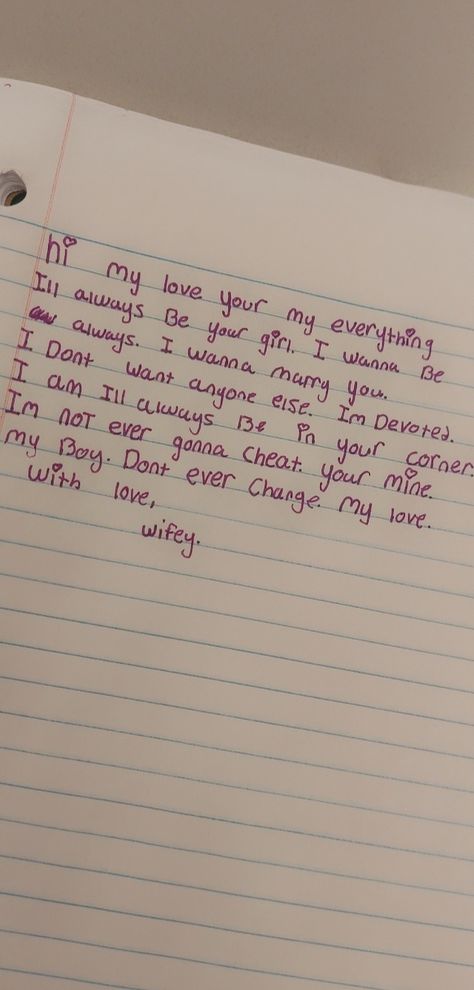 hi my love your my everything
Ill always Be your girl. I wanna Be
always. I wanna marry you.
I Dont want anyone else. Im Devoted.
I am Ill always Be in your corner.
Im noT ever gonna cheat. your mine.
my Boy. Dont ever change. my love.
with love,
wifey.